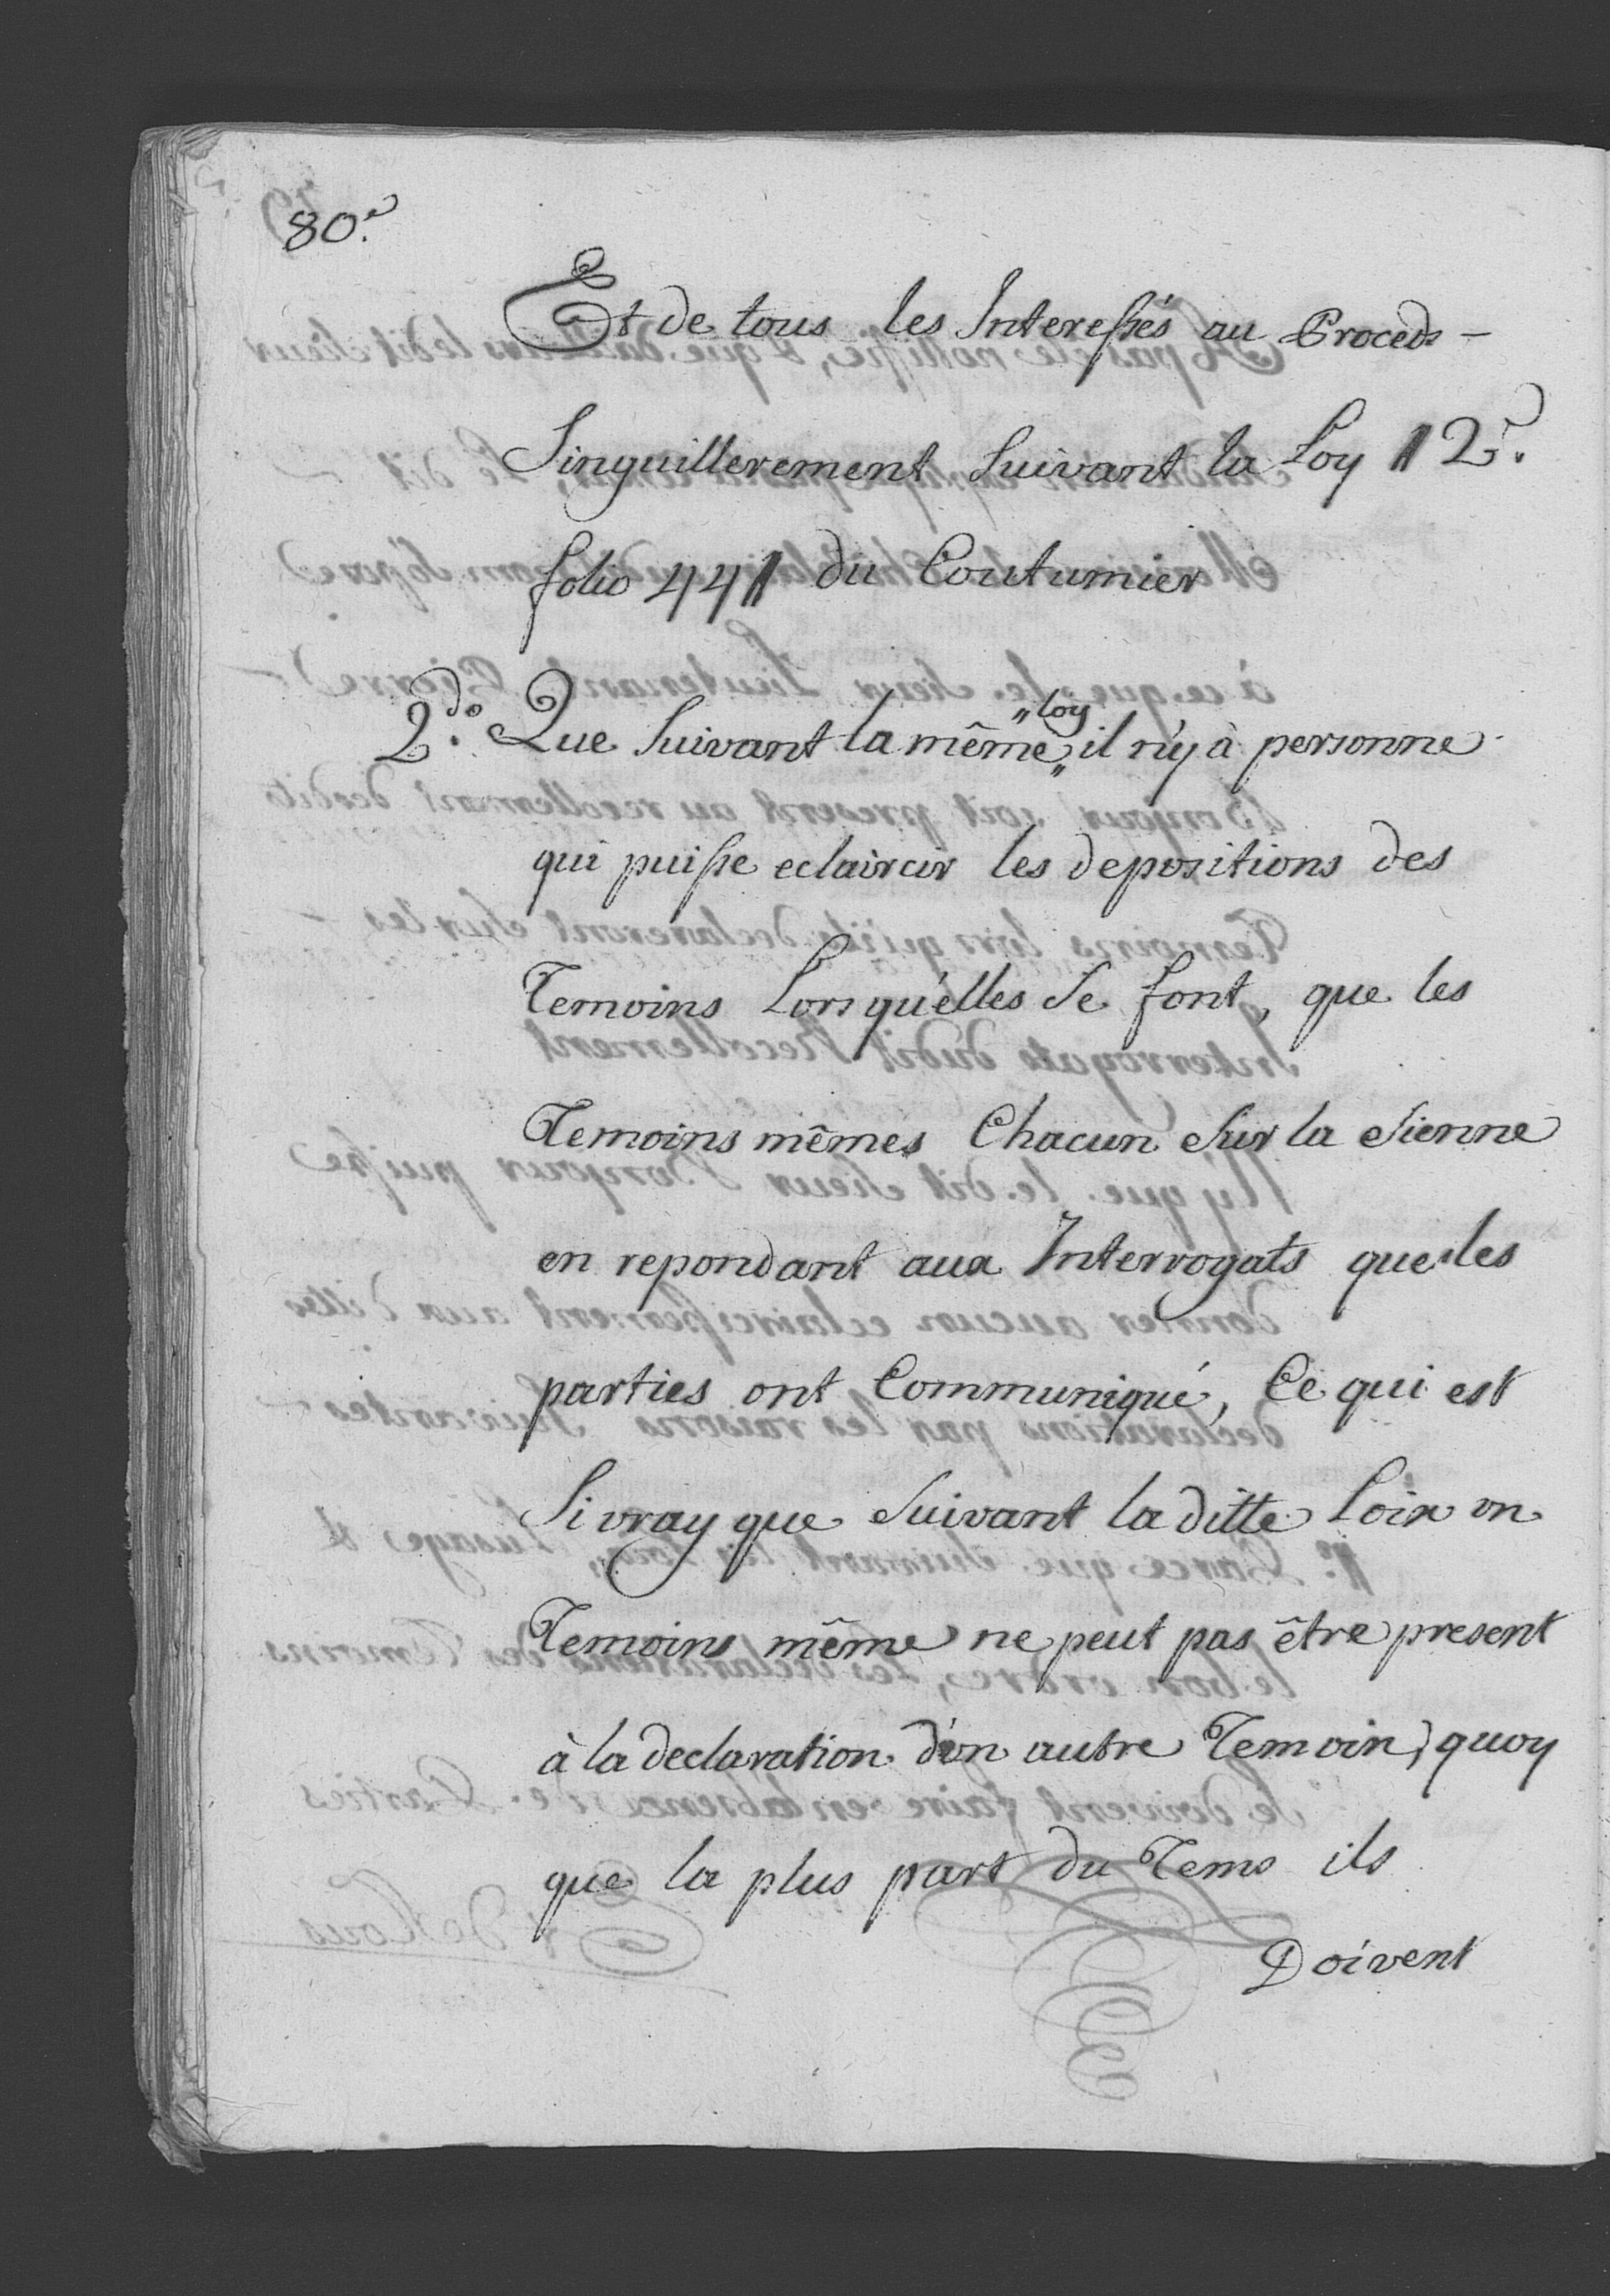 80.e
Et de tous les Interessés au Proceds -
Singuillerement Suivant la Loy 112.e
folio 4411 du Coutumier
2.do Que Suivant la même "loy" il n'y à personne
qui puisse eclaircir les depositions des
Temoins Lorsqu'elles Se font, que les
Temoins mêmes Chacun Sur la Sienne
en repondant aux Interrogats que les
parties ont Communiqué, Ce qui est
Si vray que Suivant la ditte Loix un
Temoins même ne peut pas être present
à la declaration d'un autre Temoin, quoy
que la plus part du Tems ils
Doivent